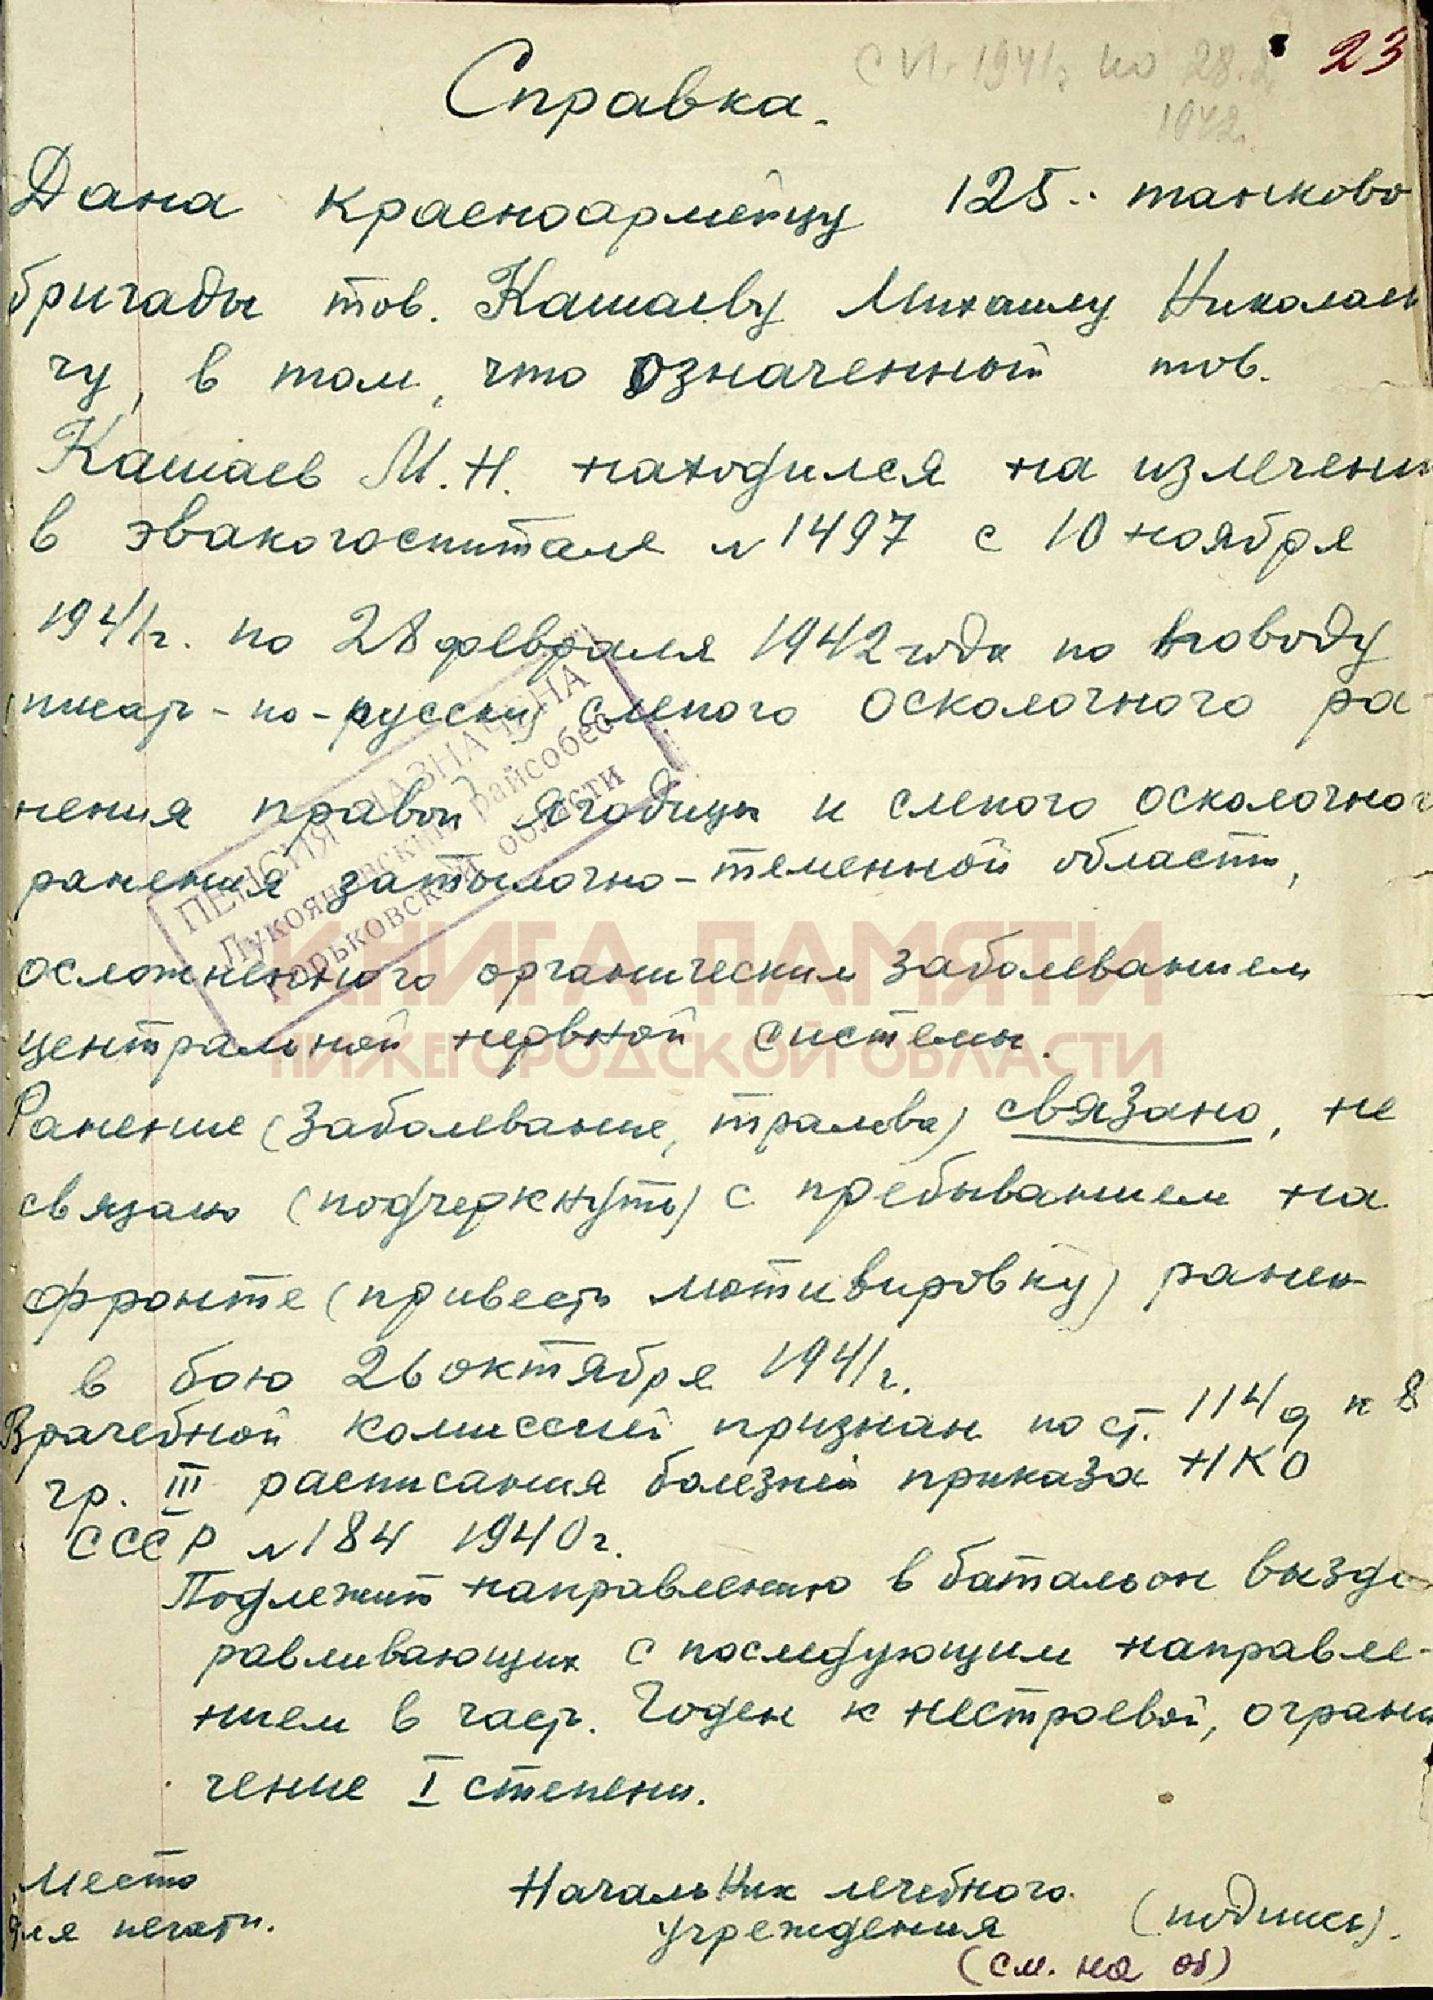 23
1941г. по 28.
1942г.
Справка.
Дана красноармейцу 125.. танково
бригады тов. Кашаеву Михаилу Николаеви
чу, в том, что означенный тов.
Кашаев М.Н. находился на излечени
в эвакогоспитале N 1497 с 10 ноября
1941г. по 28 февраля 1942 года по поводу
по-русски слепого осколочного ра-
нения правой ягодицы и слепого осколочног
ранения затылочно-теменной области,
осложненного органическим заболеванием
центральной нервной системы.
Ранение (заболевание, травма) связано, не
связано (подчеркнуть) с пребыванием на
фронте (привести мотивировку) ранен
в бою 26 октября 1941г.
Врачебной комиссией признан по ст. 114/д к 8
гр. III расписания болезней приказа НКО
СССР N 184 1940г.
Подлежит направлению в батальон выздо
равливающих с последующим направле-
нием в часть. Годен к нестроевой, ограни
чение I степени.
Место
для печати.
Начальник лечебного
учреждения
(подпись).
(см. на об)
ПЕНСИЯ НАЗНАЧЕНА
Лукояновским райсобес
Горьковской области
КНИГА ПАМЯТИ
НИЖЕГОРОДСКОЙ ОБЛАСТИ